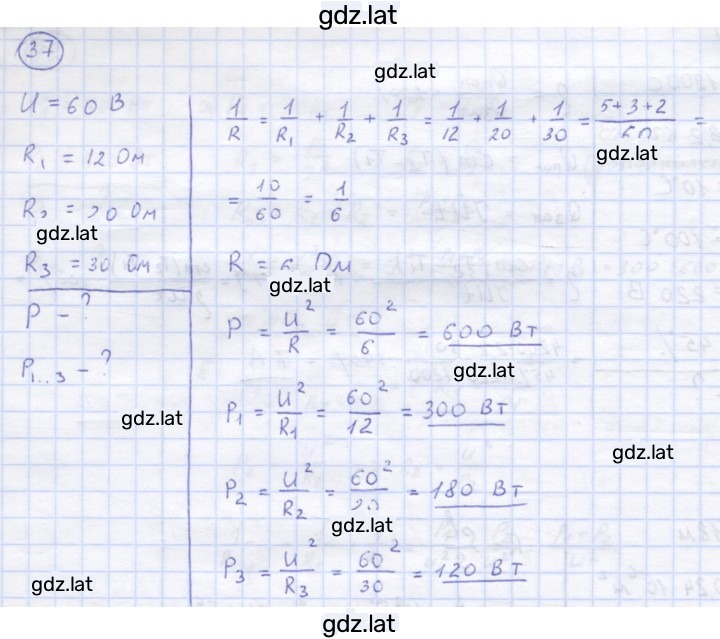 gdz.lat
37
gdz.lat
U = 60 В
R₁ = 12 Ом
R₂ = 20 Ом
gdz.lat
R₃ = 30 Ом
P - ?
P₁...₃ - ?
gdz.lat
gdz.lat
1/R = 1/R₁ + 1/R₂ + 1/R₃ = 1/12 + 1/20 + 1/30 = (5+3+2)/60 =
gdz.lat
= 10/60 = 1/6
R = 6 Ом
gdz.lat
P = U²/R = 60²/6 = 600 Вт
gdz.lat
P₁ = U²/R₁ = 60²/12 = 300 Вт
gdz.lat
P₂ = U²/R₂ = 60²/20 = 180 Вт
gdz.lat
P₃ = U²/R₃ = 60²/30 = 120 Вт
gdz.lat